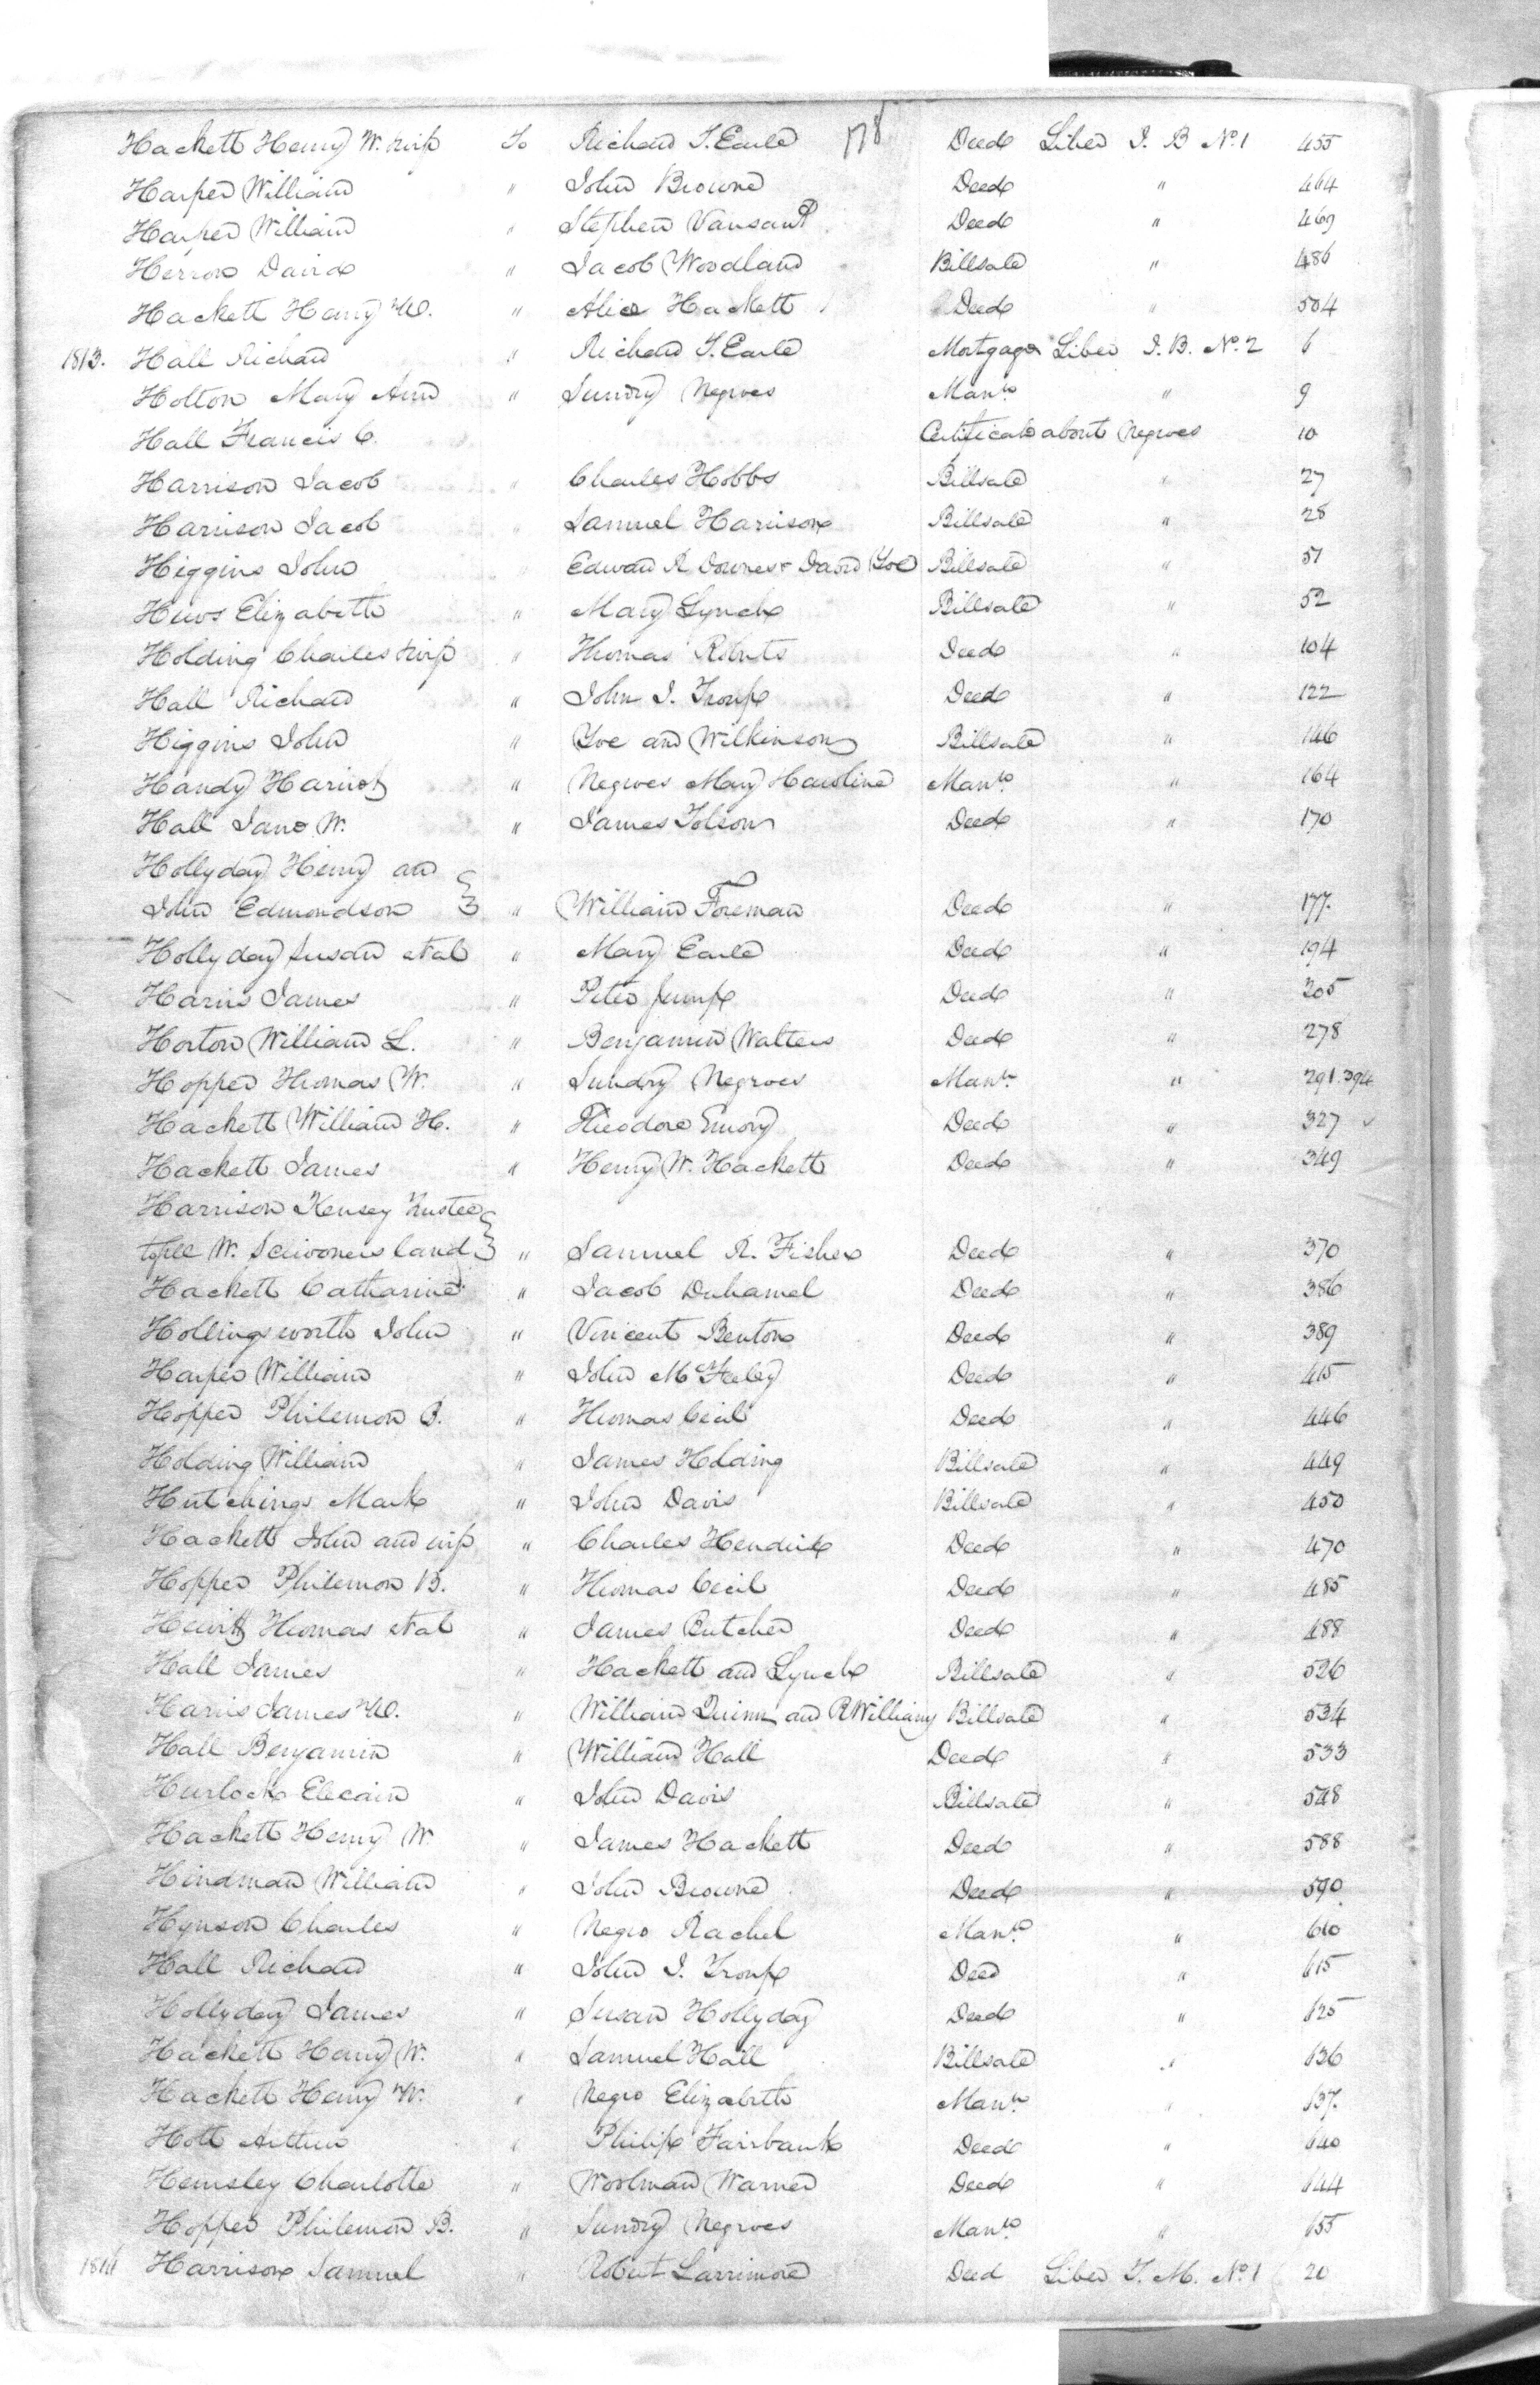 178
Hackett Henry W. & wife To Richard T. Earle Deed Liber I. B No. 1 455
Harper William " John Browne Deed " 464
Harper William " Stephen Vansant Deed " 469
Herron David " Jacob Woodland Billsale " 486
Hackett Henry W. " Alice Hackett Deed " 504
1813. Hall Richard " Richard T. Earle Mortgage Liber I. B. No. 2 6
Holton Mary Ann " Sundry Negroes Manto. " 9
Hall Francis C. Certificate about Negroes 10
Harrison Jacob " Charles Hobbs Billsale " 27
Harrison Jacob " Samuel Harrison Billsale " 28
Higgins John Edward R Downes & David Yoe Billsale " 51
Elizabeth " Mary Lynch Billsale " 52
Holding Charles & wife " Thomas Roberts Deed " 104
Hall Richard " John I. Troup Deed " 122
Higgins John " Yoe and Wilkinson Billsale " 146
Handy Hariot " Negroes Mary Manto. " 164
Hall Jane W. " James Tolson Deed " 170
Hollyday Henry and
John Edmondson " William Foreman Deed " 177.
Hollyday Susan et al " Mary Earle Deed " 194
Harris James " Peter Jump Deed " 205
Horton William L. " Benjamin Walters Deed " 278
Hopper Thomas W. " Sundry Negroes Manto. " 291.394
Hackett William H. " Theodore Emory Deed " 327
Hackett James " Henry W. Hackett Deed " 349
Harrison Kensey Trustee
W. Scrivoners land " Samuel R. Fisher Deed " 370
Hackett Catharine " Jacob Duhamel Deed " 386
Hollingsworth John " Vincent Benton Deed " 389
Harper William " John McFeeley Deed " 415
Hopper Philemon B. " Thomas Cecil Deed " 446
Holding William " James Holding Billsale " 449
Hutchings Mark " John Davis Billsale " 450
Hackett John and wife " Charles Hendrix Deed " 470
Hopper Philemon B. " Thomas Cecil Deed " 485
Hewitt Thomas et al " James Butcher Deed " 488
Hall James " Hackett and Lynch Billsale " 526
Harris James W. " William Quinn and R Williams Billsale " 534
Hall Benjamin " William Hall Deed " 533
Hurlock " John Davis Billsale " 548
Hackett Henry W. " James Hackett Deed " 588
Hindman William " John Browne Deed " 590
Hynson Charles " Negro Rachel Manto. " 610
Hall Richard " John I. Troup Deed " 615
Hollyday James " Susan Hollyday Deed " 625
Hackett Henry W. " Samuel Hall Billsale " 636
Hackett Henry W. " Negro Elizabeth Manto. " 637.
Holt Arthur " Philip Fairbank Deed " 640
Hemsley Charlotte " Woolman Warner Deed " 644
Hopper Philemon B. " Sundry Negroes Manto. " 655
1814 Harrison Samuel " Robert Larrimore Deed Liber T. M. No. 1 20